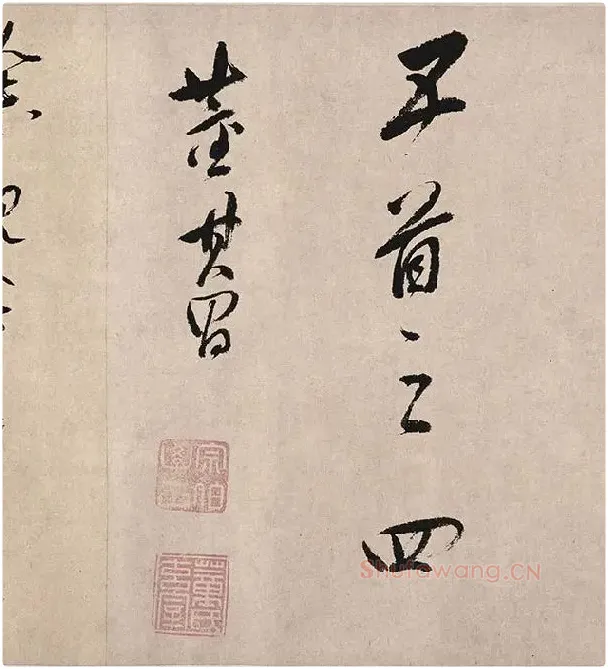 五首之四
董其昌
Shufawang.CN